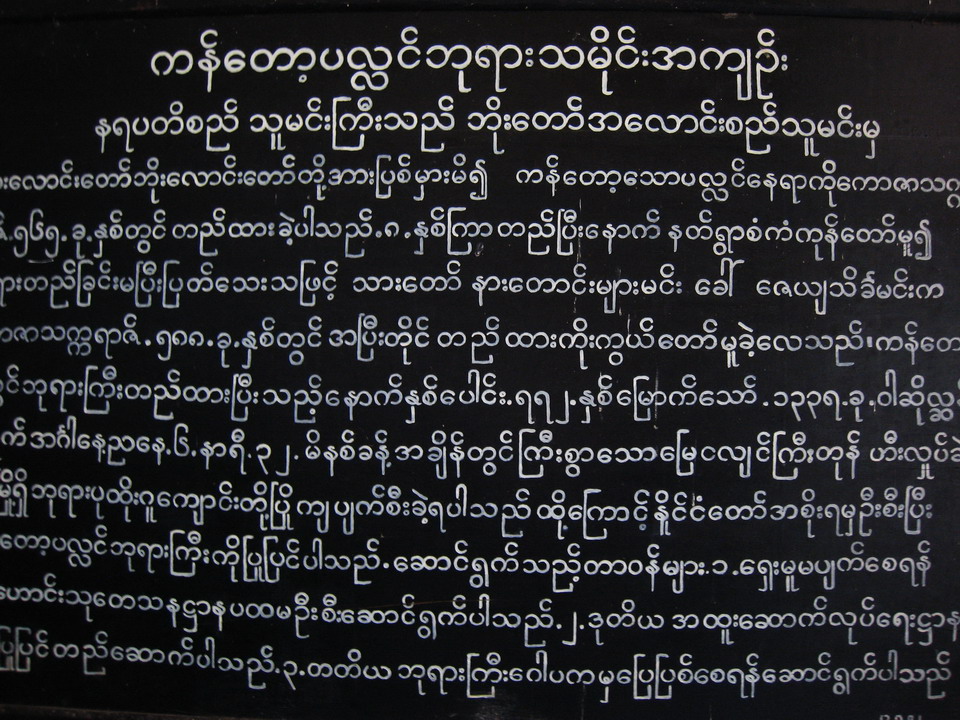 ကန်တော့ပလ္လင်ဘုရားသမိုင်းအကျဉ်း
နရပတိစည် သူမင်းကြီးသည် ဘိုးတော်အလောင်းစည်သူမင်းမှ
လောင်းတော်ဘိုးလောင်းတော်တို့အားပြစ်မှားမိ၍ ကန်တော့သောပလ္လင်နေရာကိုကောဇာသက္က
.၅၆၅.ခု.နှစ်တွင် တည်ထားခဲ့ပါသည်.၈.နှစ်ကြာတည်ပြီးနောက် နတ်ရွာစံကံကုန်တော်မူ၍
ရားတည်ခြင်းမပြီးပြတ်သေးသဖြင့် သားတော် နားတောင်းများမင်း ခေါ် ဇေယျသိင်္ခမင်းက
ဇာသက္ကရာဇ်.၅၈၈.ခု.နှစ်တွင် အပြီးတိုင် တည်ထားကိုးကွယ်တော်မူခဲ့လေသည်။ကန်တော
င်ဘုရားကြီးတည်ထားပြီးသည့်နောက်နှစ်ပေါင်း.၇၇၂.နှစ်မြောက်သော်.၁၃၃၇.ခု.ဝါဆိုလ္ဆန်
က်အင်္ဂါနေ့ညနေ.၆.နာရီ.၃၂.မိနစ်ခန့်အချိန်တွင်ကြီးစွာသောမြေငလျင်ကြီးတုန် ဟီးလှုပ်ခဲ
မြို့ရှိဘုရားပုထိုးဂူကျောင်းတို့ပြိုကျပျက်စီးခဲ့ရပါသည်ထို့ကြောင့်နိုင်ငံတော်အစိုးရမှဦးစီးပြီး
တော့ပလ္လင်ဘုရားကြီးကိုပြုပြင်ပါသည်.ဆောင်ရွက်သည့်တာဝန်များ.၁.ရှေးမူမပျက်စေရန်
ဟောင်းသုတေသနဋ္ဌာနပထမဦးစီးဆောင်ရွက်ပါသည်.၂.ဒုတိယ အထူးဆောက်လုပ်ရေးဋ္ဌာန
ပြုပြင်တည်ဆောက်ပါသည်.၃.တတိယ ဘုရားကြီးဂေါပကမှပြေပြစ်စေရန်ဆောင်ရွက်ပါသည်